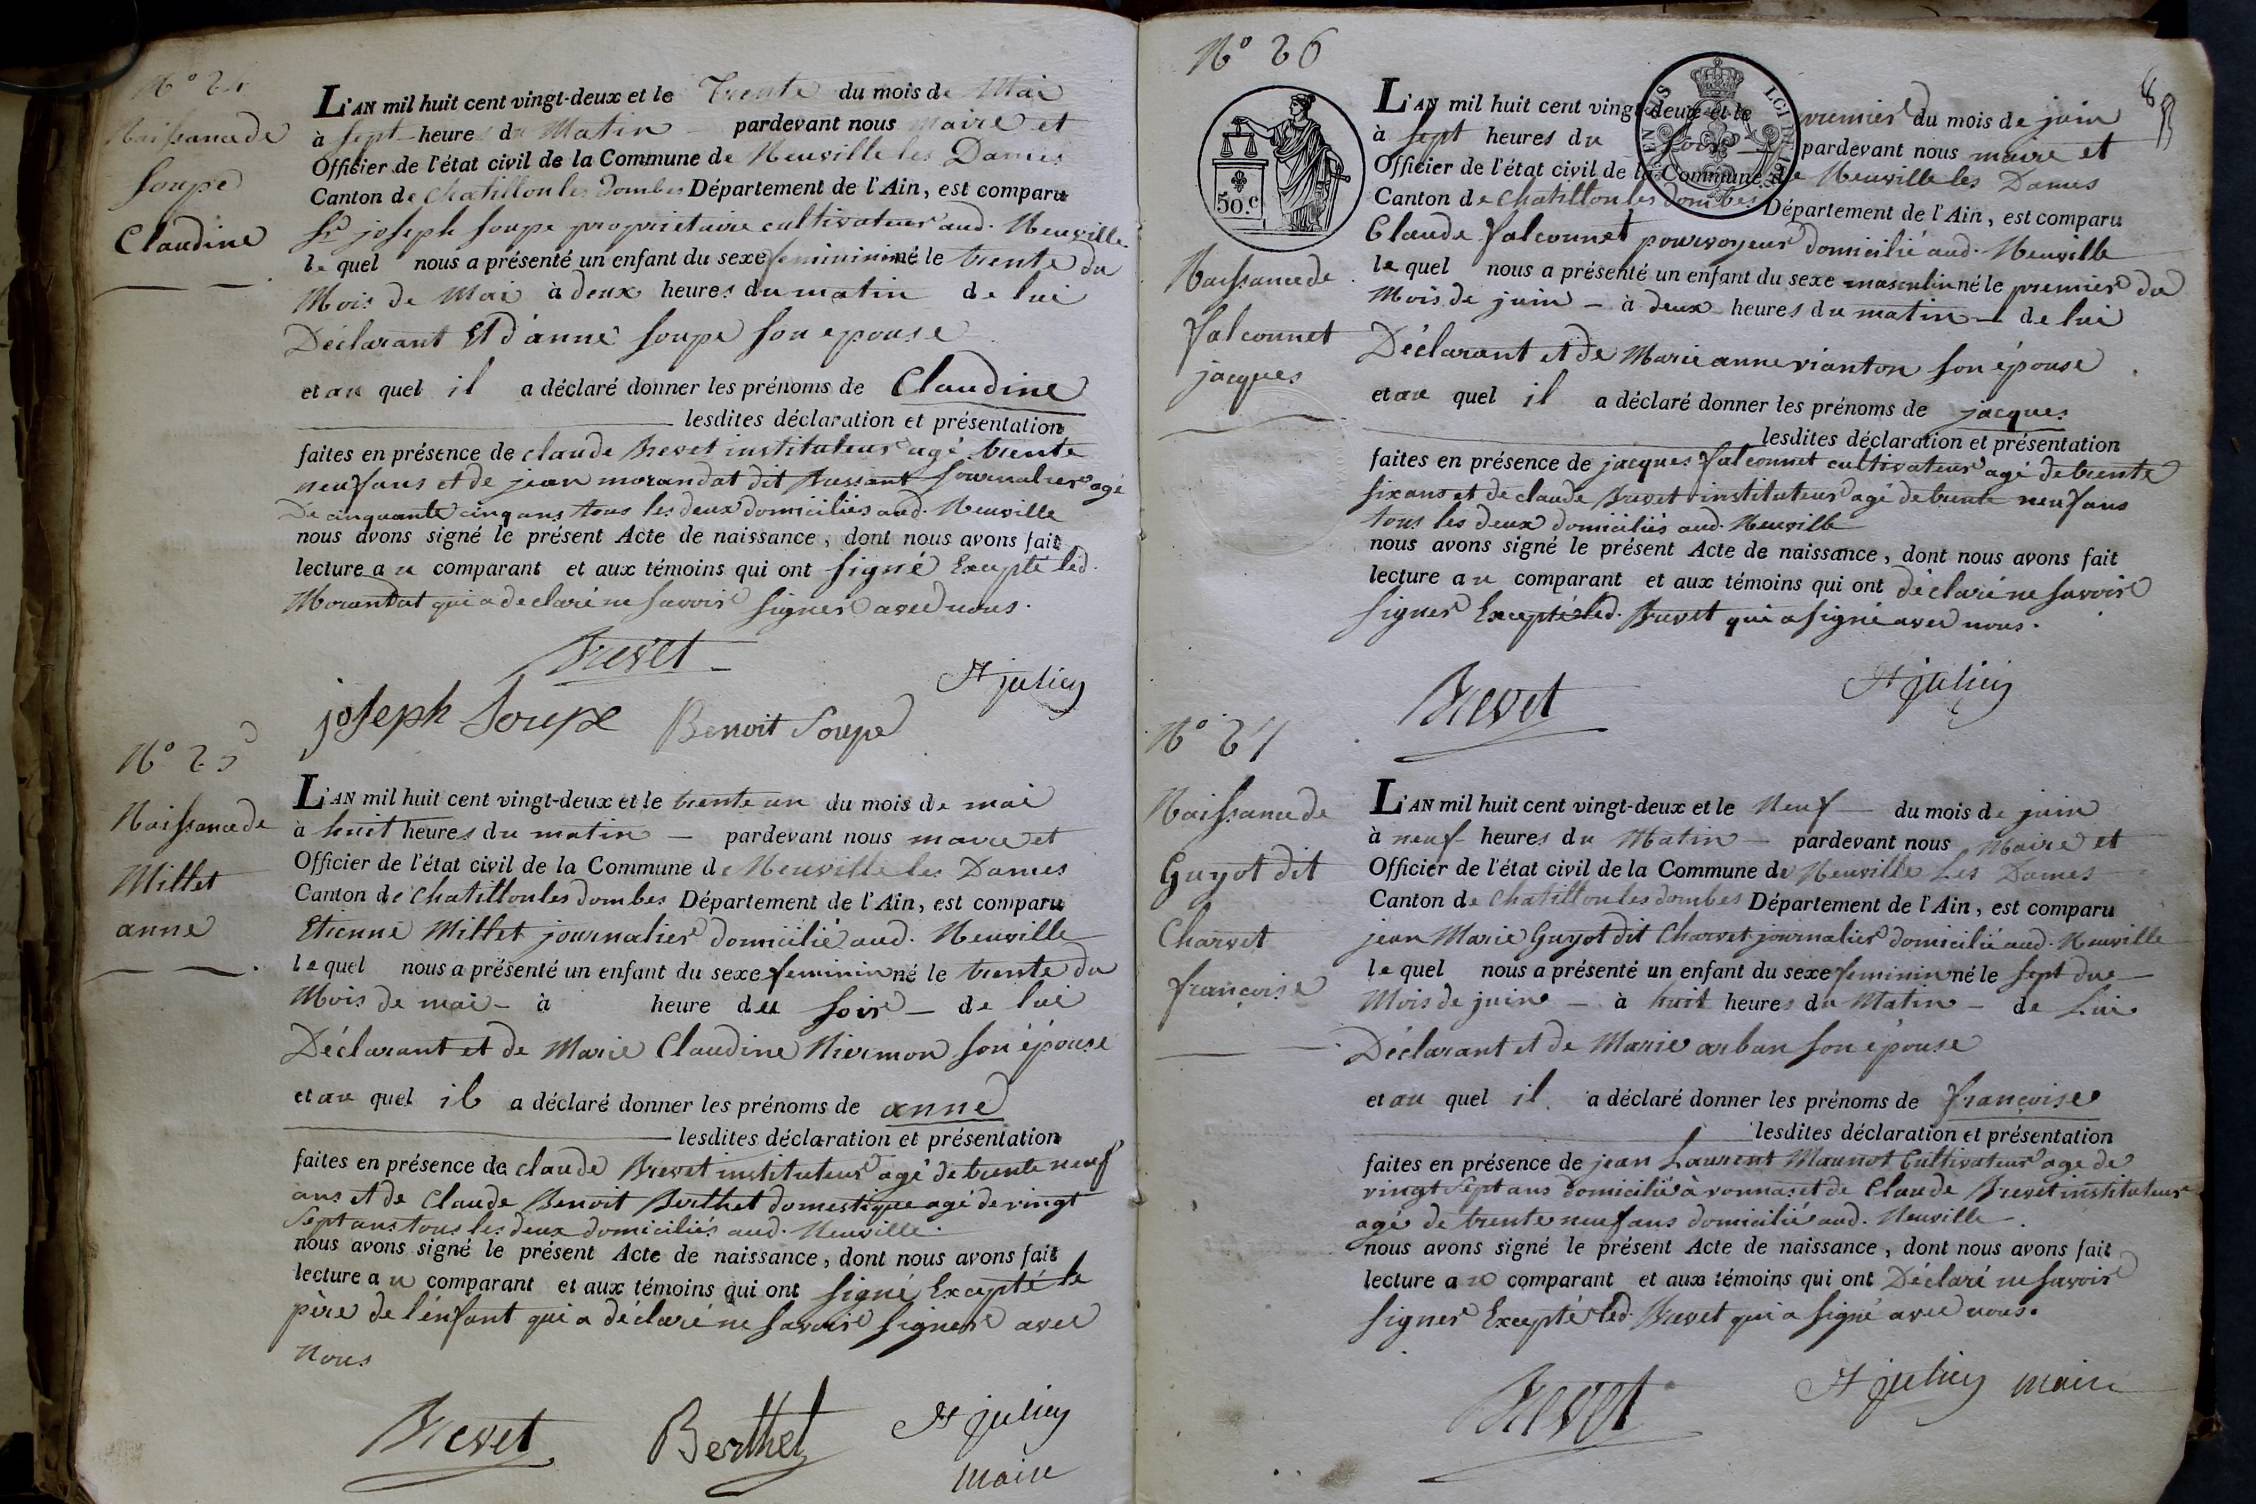 N° 24
Naissance de
Soupe
Claudine
L'AN mil huit cent vingt-deux et le Trente du mois de Mai
à sept heures du Matin pardevant nous maire et
Officier de l'état civil de la Commune de Neuville les Dames
Canton de Chatillon les Dombes Département de l'Ain, est comparu
Sr joseph Soupe proprietaire cultivateur aud. Neuville
lequel nous a présenté un enfant du sexe feminin né le trente du
Mois de Mai à deux heures du matin de lui
Déclarant Et d'anne Soupe son epouse
et au quel il a déclaré donner les prénoms de Claudine
lesdites déclaration et présentation
faites en présence de claude Brevet instituteur agé trente
neuf ans et de jean morandat dit journalier agé
De cinquante cinq ans tous les deux domiciliés aud. Neuville
nous avons signé le présent Acte de naissance, dont nous avons fait
lecture au comparant et aux témoins qui ont signé Excepté led.
Morandat qui a declaré ne savoir signer avec nous.
Brevet
St julien
joseph Soupe Benoit Soupe
N° 25
Naissance de
Millet
anne
L'AN mil huit cent vingt-deux et le trente un du mois de mai
à huit heures du matin pardevant nous maire et
Officier de l'état civil de la Commune de Neuville les Dames
Canton de Chatillon les dombes Département de l'Ain, est comparu
Etienne Millet journalier domicilié aud. Neuville
lequel nous a présenté un enfant du sexe feminin né le trente du
Mois de mai à heure du soir de lui
Déclarant et de Marie Claudine Niermon son épouse
et au quel il a déclaré donner les prénoms de anne
lesdites déclaration et présentation
faites en présence de claude Brevet instituteur agé de trente neuf
ans et de Claude Benoit Berthet domestique agé de vingt
Sept ans tous les deux domiciliés aud. Neuville.
nous avons signé le présent Acte de naissance, dont nous avons fait
lecture au comparant et aux témoins qui ont signé Excepté le
père de l'enfant qui a déclaré ne savoir signer avec
nous
Brevet Berthet St julien
maire
N° 26
8
50.c
Naissance de
falconnet
jacques
L'AN mil huit cent vingt-deux et le premier du mois de juin
à sept heures du soir pardevant nous maire et
Officier de l'état civil de la Commune de Neuville les Dames
Canton de Chatillon les dombes Département de l'Ain, est comparu
Claude falconnet pourvoyeur domicilié aud. Neuville
lequel nous a présenté un enfant du sexe masculin né le premier du
Mois de juin à deux heures du matin de lui
Déclarant et de Marie anne vianton son épouse
et au quel il a déclaré donner les prénoms de jacques
lesdites déclaration et présentation
faites en présence de jacques falconnet cultivateur agé de trente
six ans et de claude Brevet instituteur agé de trente neuf ans
tous les deux domiciliés aud. Neuville
nous avons signé le présent Acte de naissance, dont nous avons fait
lecture au comparant et aux témoins qui ont déclaré ne savoir
signer Excepté led. Brevet qui a signé avec nous.
Brevet
St julien
N° 27
Naissance de
Guyot dit
Charvet
françoise
L'AN mil huit cent vingt-deux et le Neuf du mois de juin
à neuf heures du Matin pardevant nous Maire et
Officier de l'état civil de la Commune de Neuville Les Dames
Canton de Chatillon les dombes Département de l'Ain, est comparu
jean Marie Guyot dit Charvet journalier domicilié aud. Neuville
lequel nous a présenté un enfant du sexe feminin né le sept du
Mois de juin à huit heures du Matin de Lui
Déclarant et de Marie arban son épouse
et au quel il a déclaré donner les prénoms de françoise
lesdites déclaration et présentation
faites en présence de jean Laurent Maunot Cultivateur agé de
vingt sept ans domicilié à vonnas et de Claude Brevet instituteur
agé de trente neuf ans domicilié aud. Neuville.
nous avons signé le présent Acte de naissance, dont nous avons fait
lecture au comparant et aux témoins qui ont Déclaré ne savoir
signer Excepté led. Brevet qui a signé avec nous.
Brevet
St julien maire